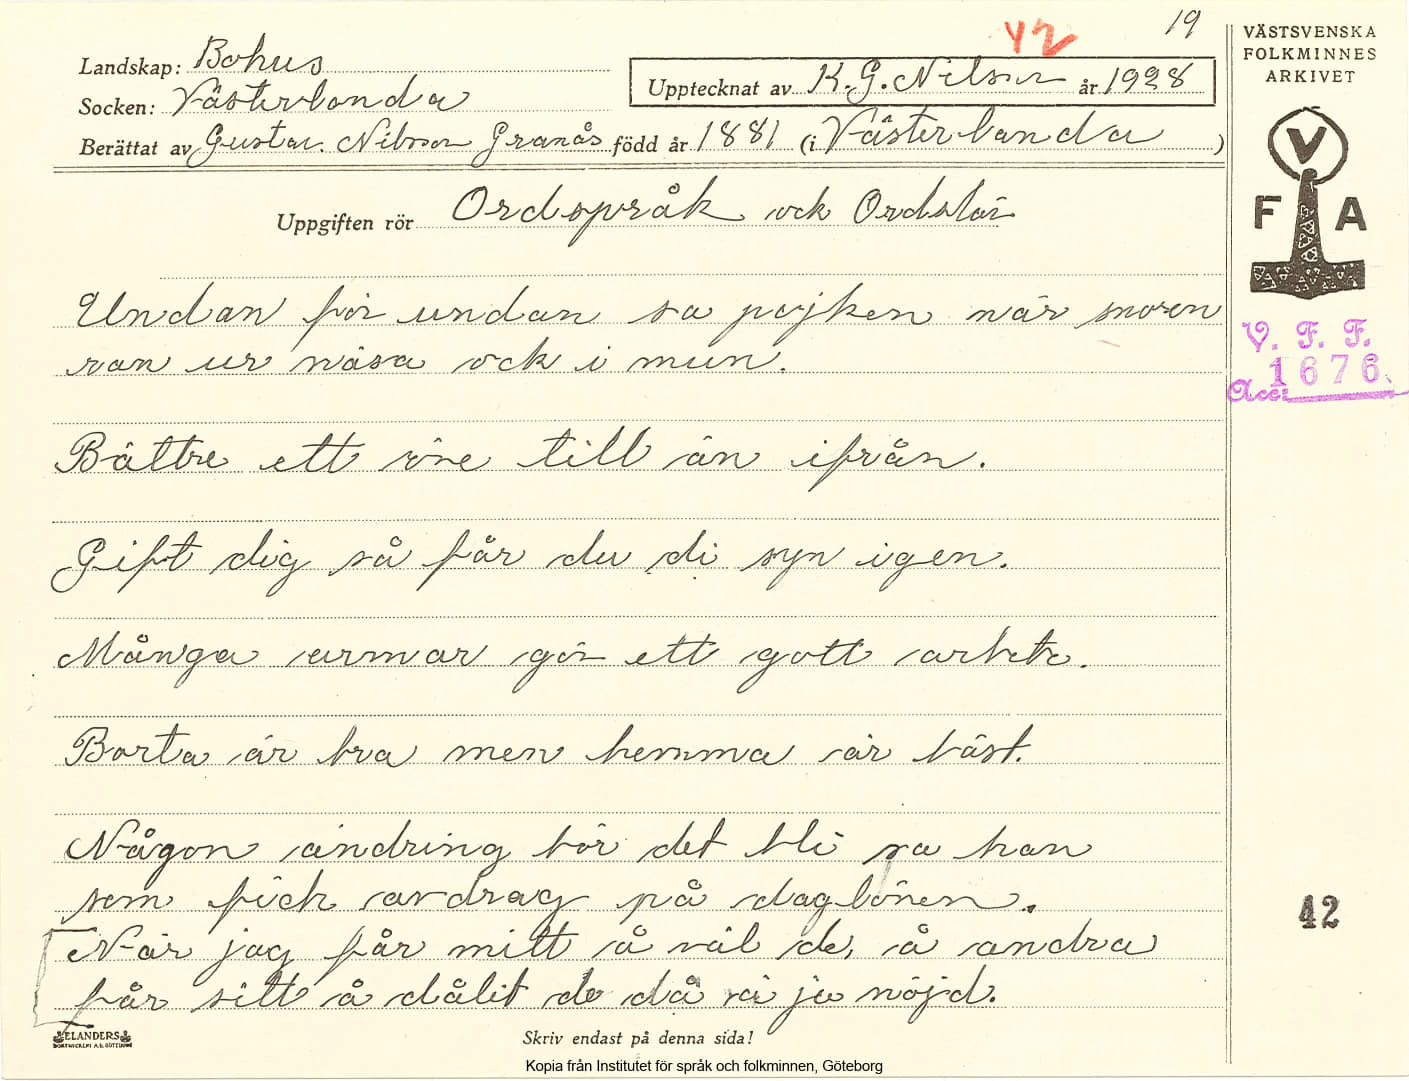 42
19
Landskap: Bohus
Upptecknat av K. G. Nilson år 1928
Socken: Västerlanda
Berättat av Gustav Nilsson Granås född år 1881 (i Västerlanda)
Uppgiften rör Ordspråk ock Ordstäv
Undan för undan sa pojken när snoren
ran ur näsa ock i mun.
Bättre ett öre till än ifrån.
Gift dig så får du di syn igen.
Många armar gör ett gott arbete.
Borta är bra men hemma är bäst.
Någon ändring bör det bli sa han
som fick avdrag på daglönen.
När jag får mitt å väl de, å andra
får sitt å dålit de då är ja nöjd.
ELANDERS
Skriv endast på denna sida!
VÄSTSVENSKA
FOLKMINNES
ARKIVET
V
F A
V. F. F.
Acc: 1676
42
Kopia från Institutet för språk och folkminnen, Göteborg